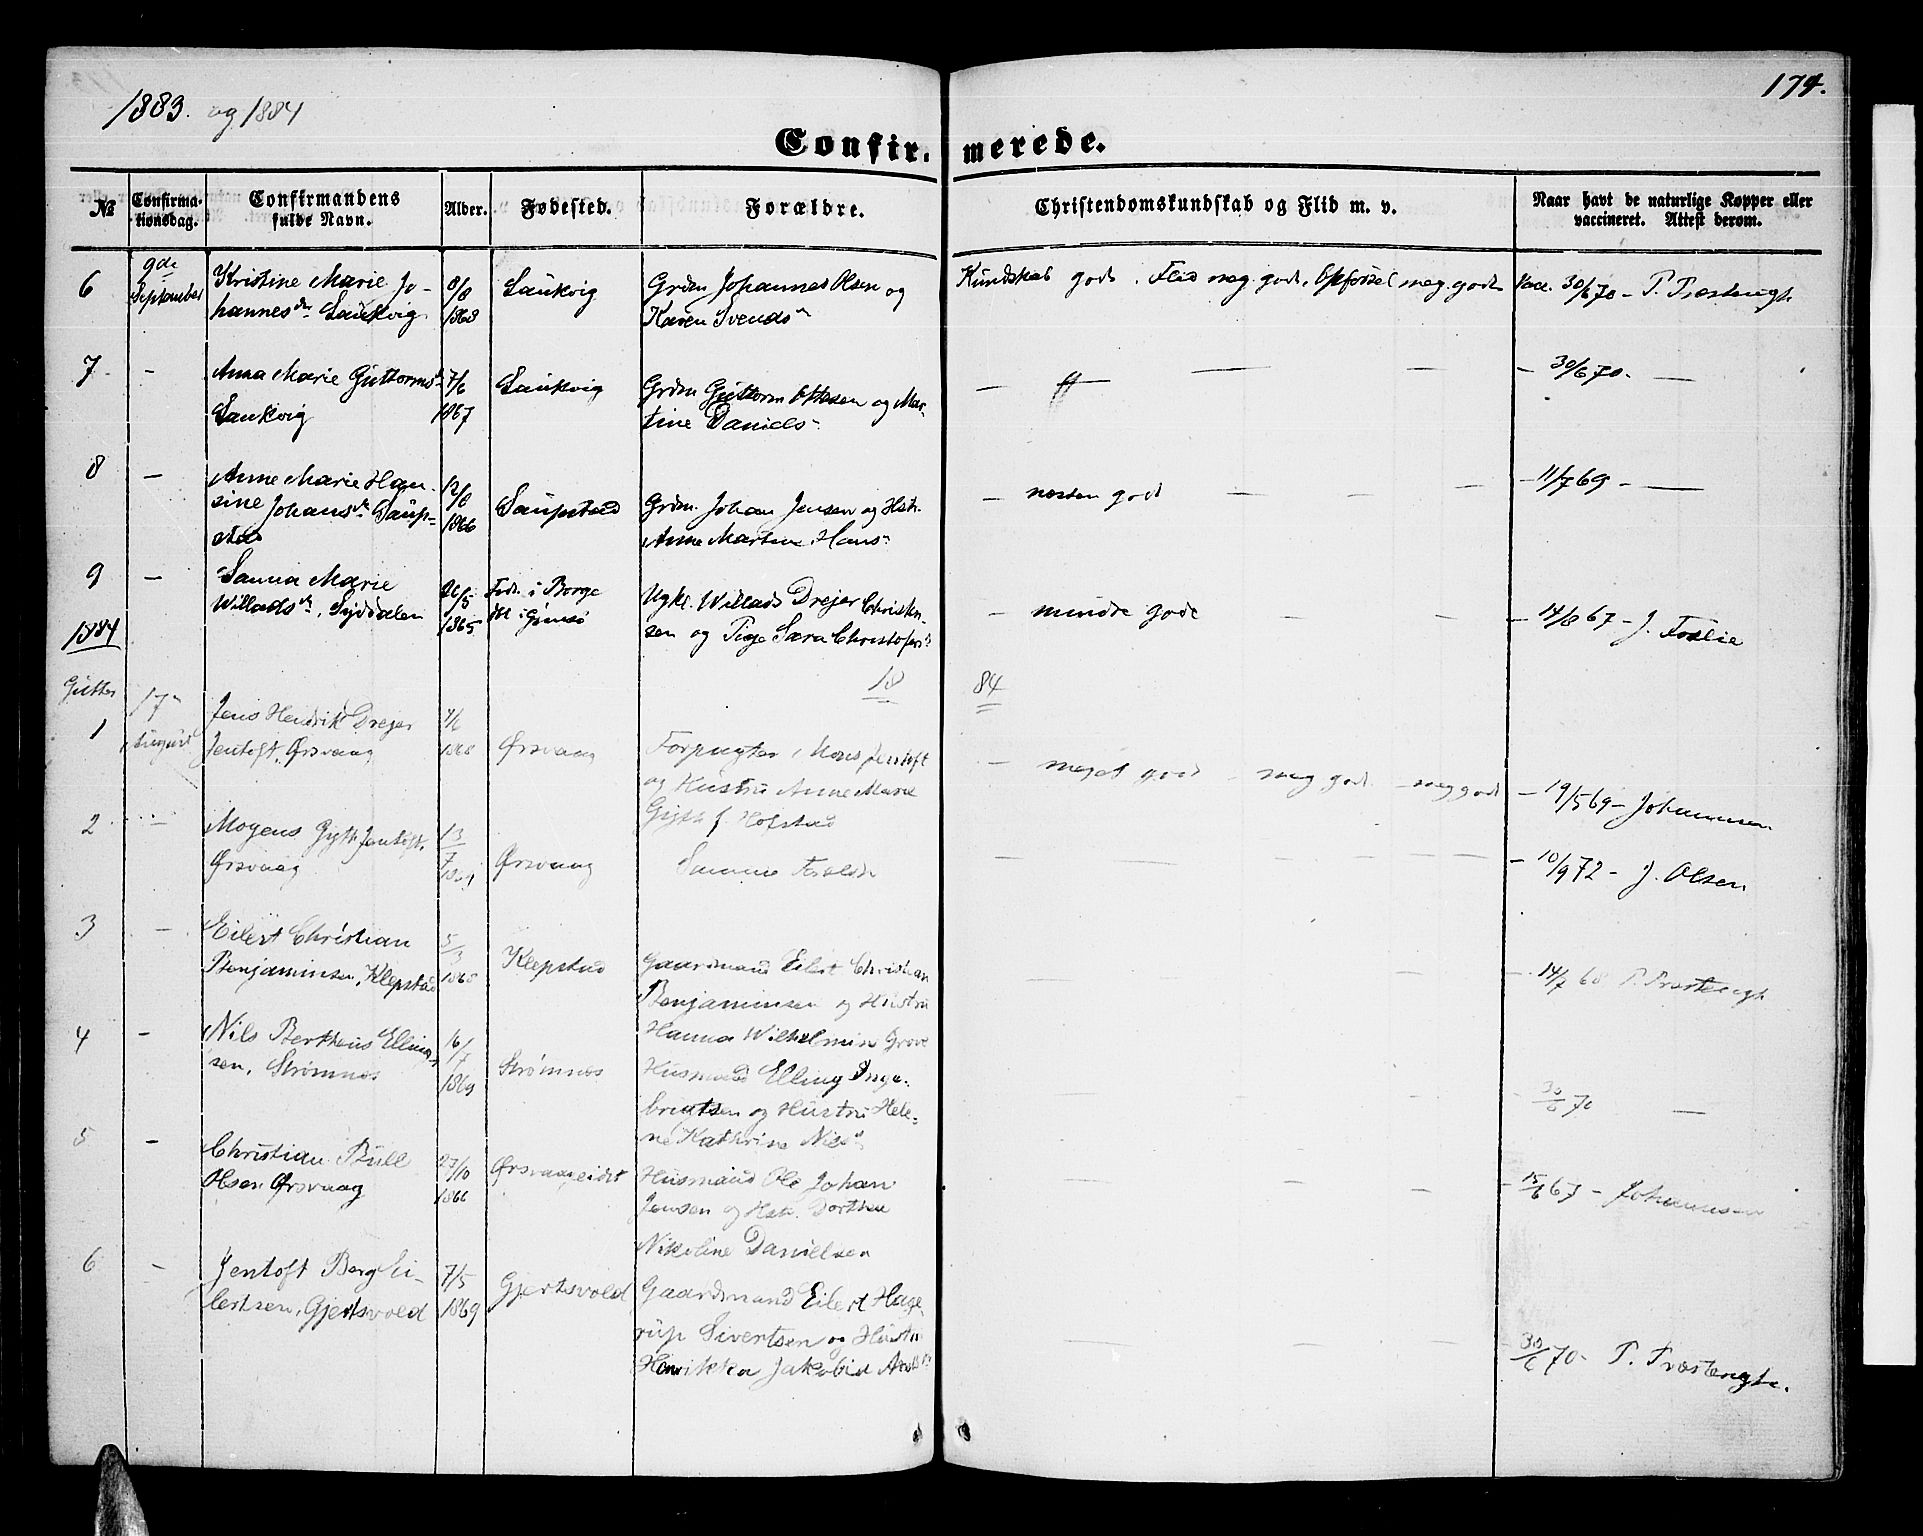 1883. og 1884
174.
Confir- merede.
№
Confirma-
tionsdag.
Confirmandens
fulde Navn.
Alder.
Fødested.
Forældre.
Christendomskundskab og Flid m. v.
Naar havt de naturlige Kopper eller
vaccineret. Attest derom.
6
9de
September
Kristine Marie Jo-
hannesdr Laukvig
8/8
1868
Laukvig
Grdm Johannes Olsen og
Karen Svendsdr
Kundskab god. Flid meg. god, Opførsel meg. god
Vacc. 30/6 70 – P. Præstengh
7 -
Anna Marie Guttorms
Laukvig
7/6
1867
Laukvig
Grdm Guttorm Ottesen og Mar-
tine Daniels
– 30/6 70. —
8 —
Anne Marie Han-
sine Johansdr Laup-
stad
12/8
1866
Laupstad
Grdm. Johan Jensen og Hst.
Anne Martine Hans
— næsten god — — —
– 11/7 69 – —
9 —
Sanna Marie
Willadsdr, Syddalen
1865
Født i Borge
i Gimsø
Ugkl. Willads Drejer Christen-
sen og Pige Sara Christofers
– mindre god — — —
– 14/8 67 – J. Foslie
1884
Gutter
18 84
1
17de
August
Jens Hendrik Drejer
Jentoft, Ørsvaag
1868
Ørsvaag
Forpagter Mons Jentoft
og Hustru Anne Marie
Gyth f. Hofstad
– meget god – meg god. – meg god
– 19/5 69 – Johannsen
2
Mogens Gyth Jentoft,
Ørsvaag
13
7
Ørsvaag
Samme Forældre
– 10/9 72 – J. Olsen
3 —
Eilert Christian
Benjaminsen, Klepstad
5/3
1868
Klepstad
Gaardmand Eilert Christian
Benjaminsen og Hustru
Hanna Wilhelmine Grove
– 14/7 68 P. Præstengh
4 —
Nils Bertheus Elling-
sen, Strømnæs
16/7
1869
Strømnæs
Husmand Elling Inge-
brigtsen og Hustru Hele-
ne Kathrine Nilsdr
30/6 70 —
5 —
Christian Bull
Olsen Ørsvaag
27/10
1866
Ørsvaageidet
Husmand Ole Johan
Jensen og Hstr. Dorthea
Nikoline Danielsen
– 15/6 67 – Johannsen
6 —
Jentoft Berg Ei-
lertsen, Gjertsvold
7/5
1869
Gjertsvold
Gaardmand Eilert Hage-
rup Sivertsen og Hustru
Henrikka Jakobine
– 30/6 70 – P. Præstengh.